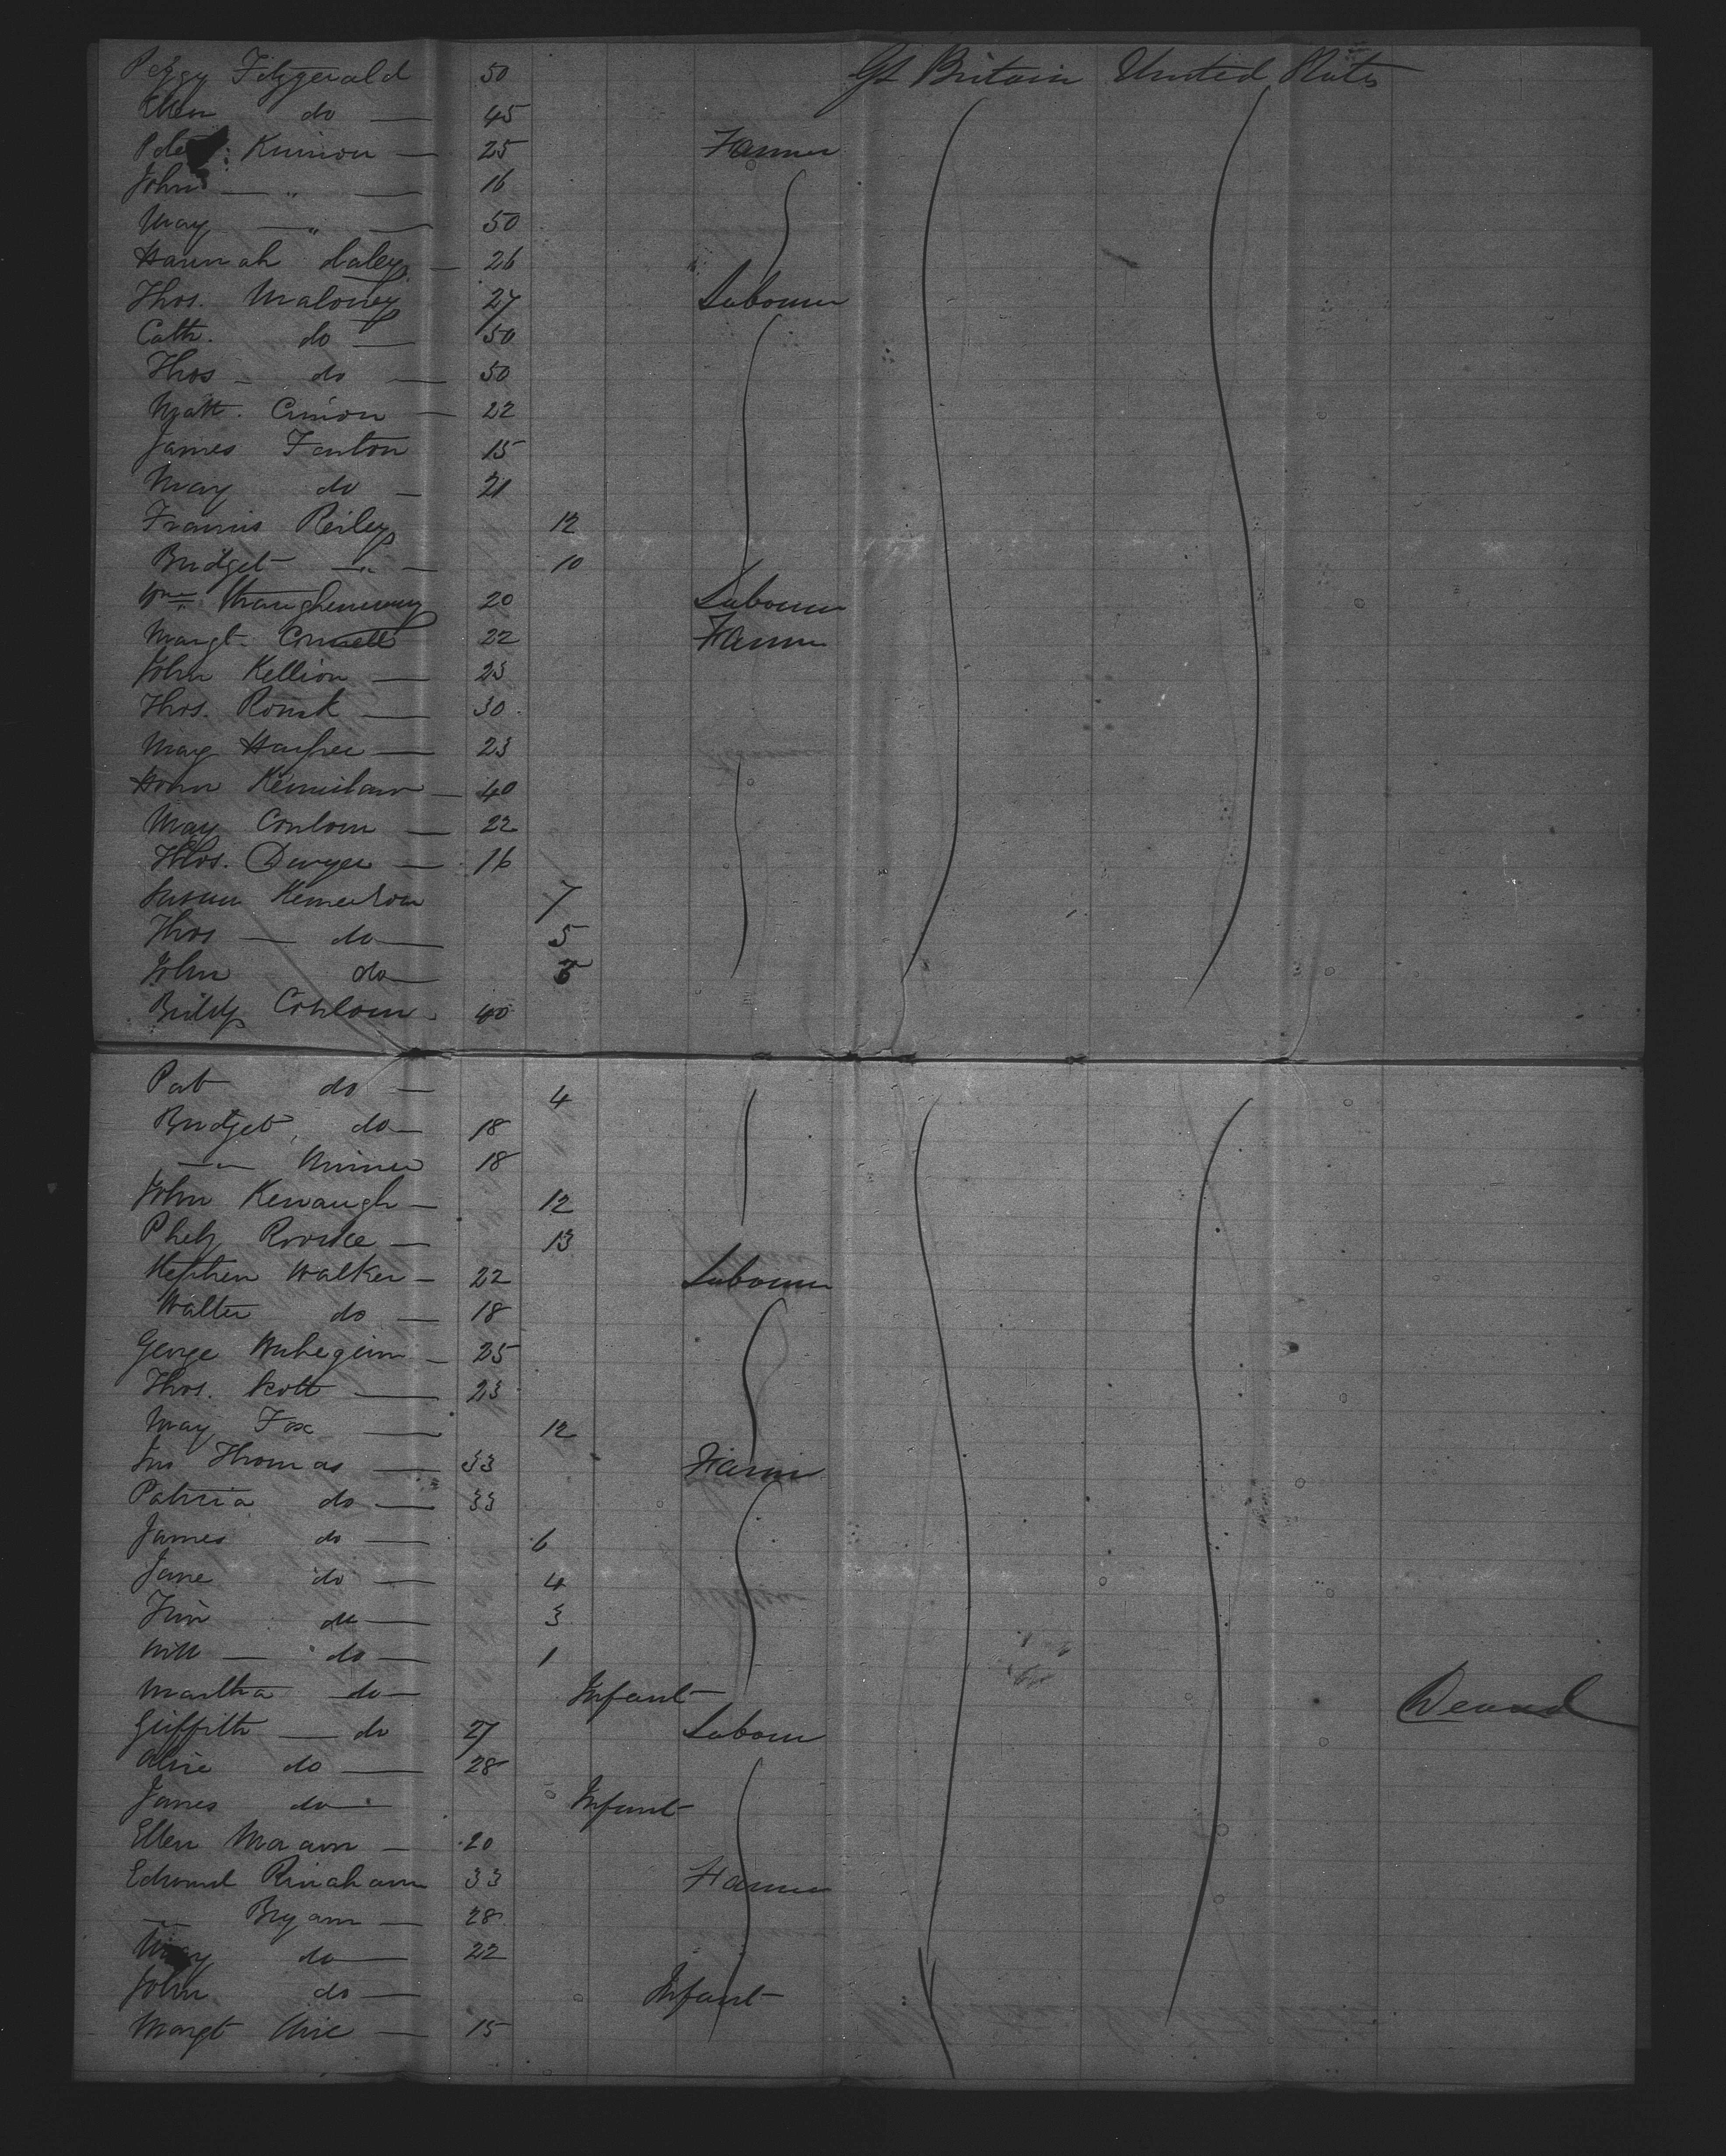 Peggy Fitzgerald 50 Gt Britain United States
Ellen do 45
Peter Kinnion 25 Farmer
John " 16
Mary " 50
Hannah Daley 26
Thos. Maloney 27 Labourer
Cath. do 50
Thos do 50
Matt. Cinion 22
James Fanton 15
Mary do 21
Francis Reiley 12
Bridget " 10
Wm 20 Labourer
Margt. Connell 22 Farmer
John Kellion 23
Thos. Rourk 30
Mary 23
40
Mary Conlown 22
Thos. Dwyer 16
Susan 7
Thos do 5
John do
Biddy Conlown 40
Pat do 4
Bridget do 18
" 18
John Kewaugh 12
Rourke 13
Stephen Walker 22 Labourer
Walter do 18
George 25
Thos. Scott 23
Mary Fox 12
Jno Thomas 33 Farmer
Patricia do 33
James do 6
Jane do 4
Jim do 3
Will do 1
Martha do Infant
Griffith do 27 Labourer
Alice do 28
James do Infant
Ellen 20
Edmund Rinahann 33 Farmer
Bryann 28
Mary do 22
John do Infant
Margt 15